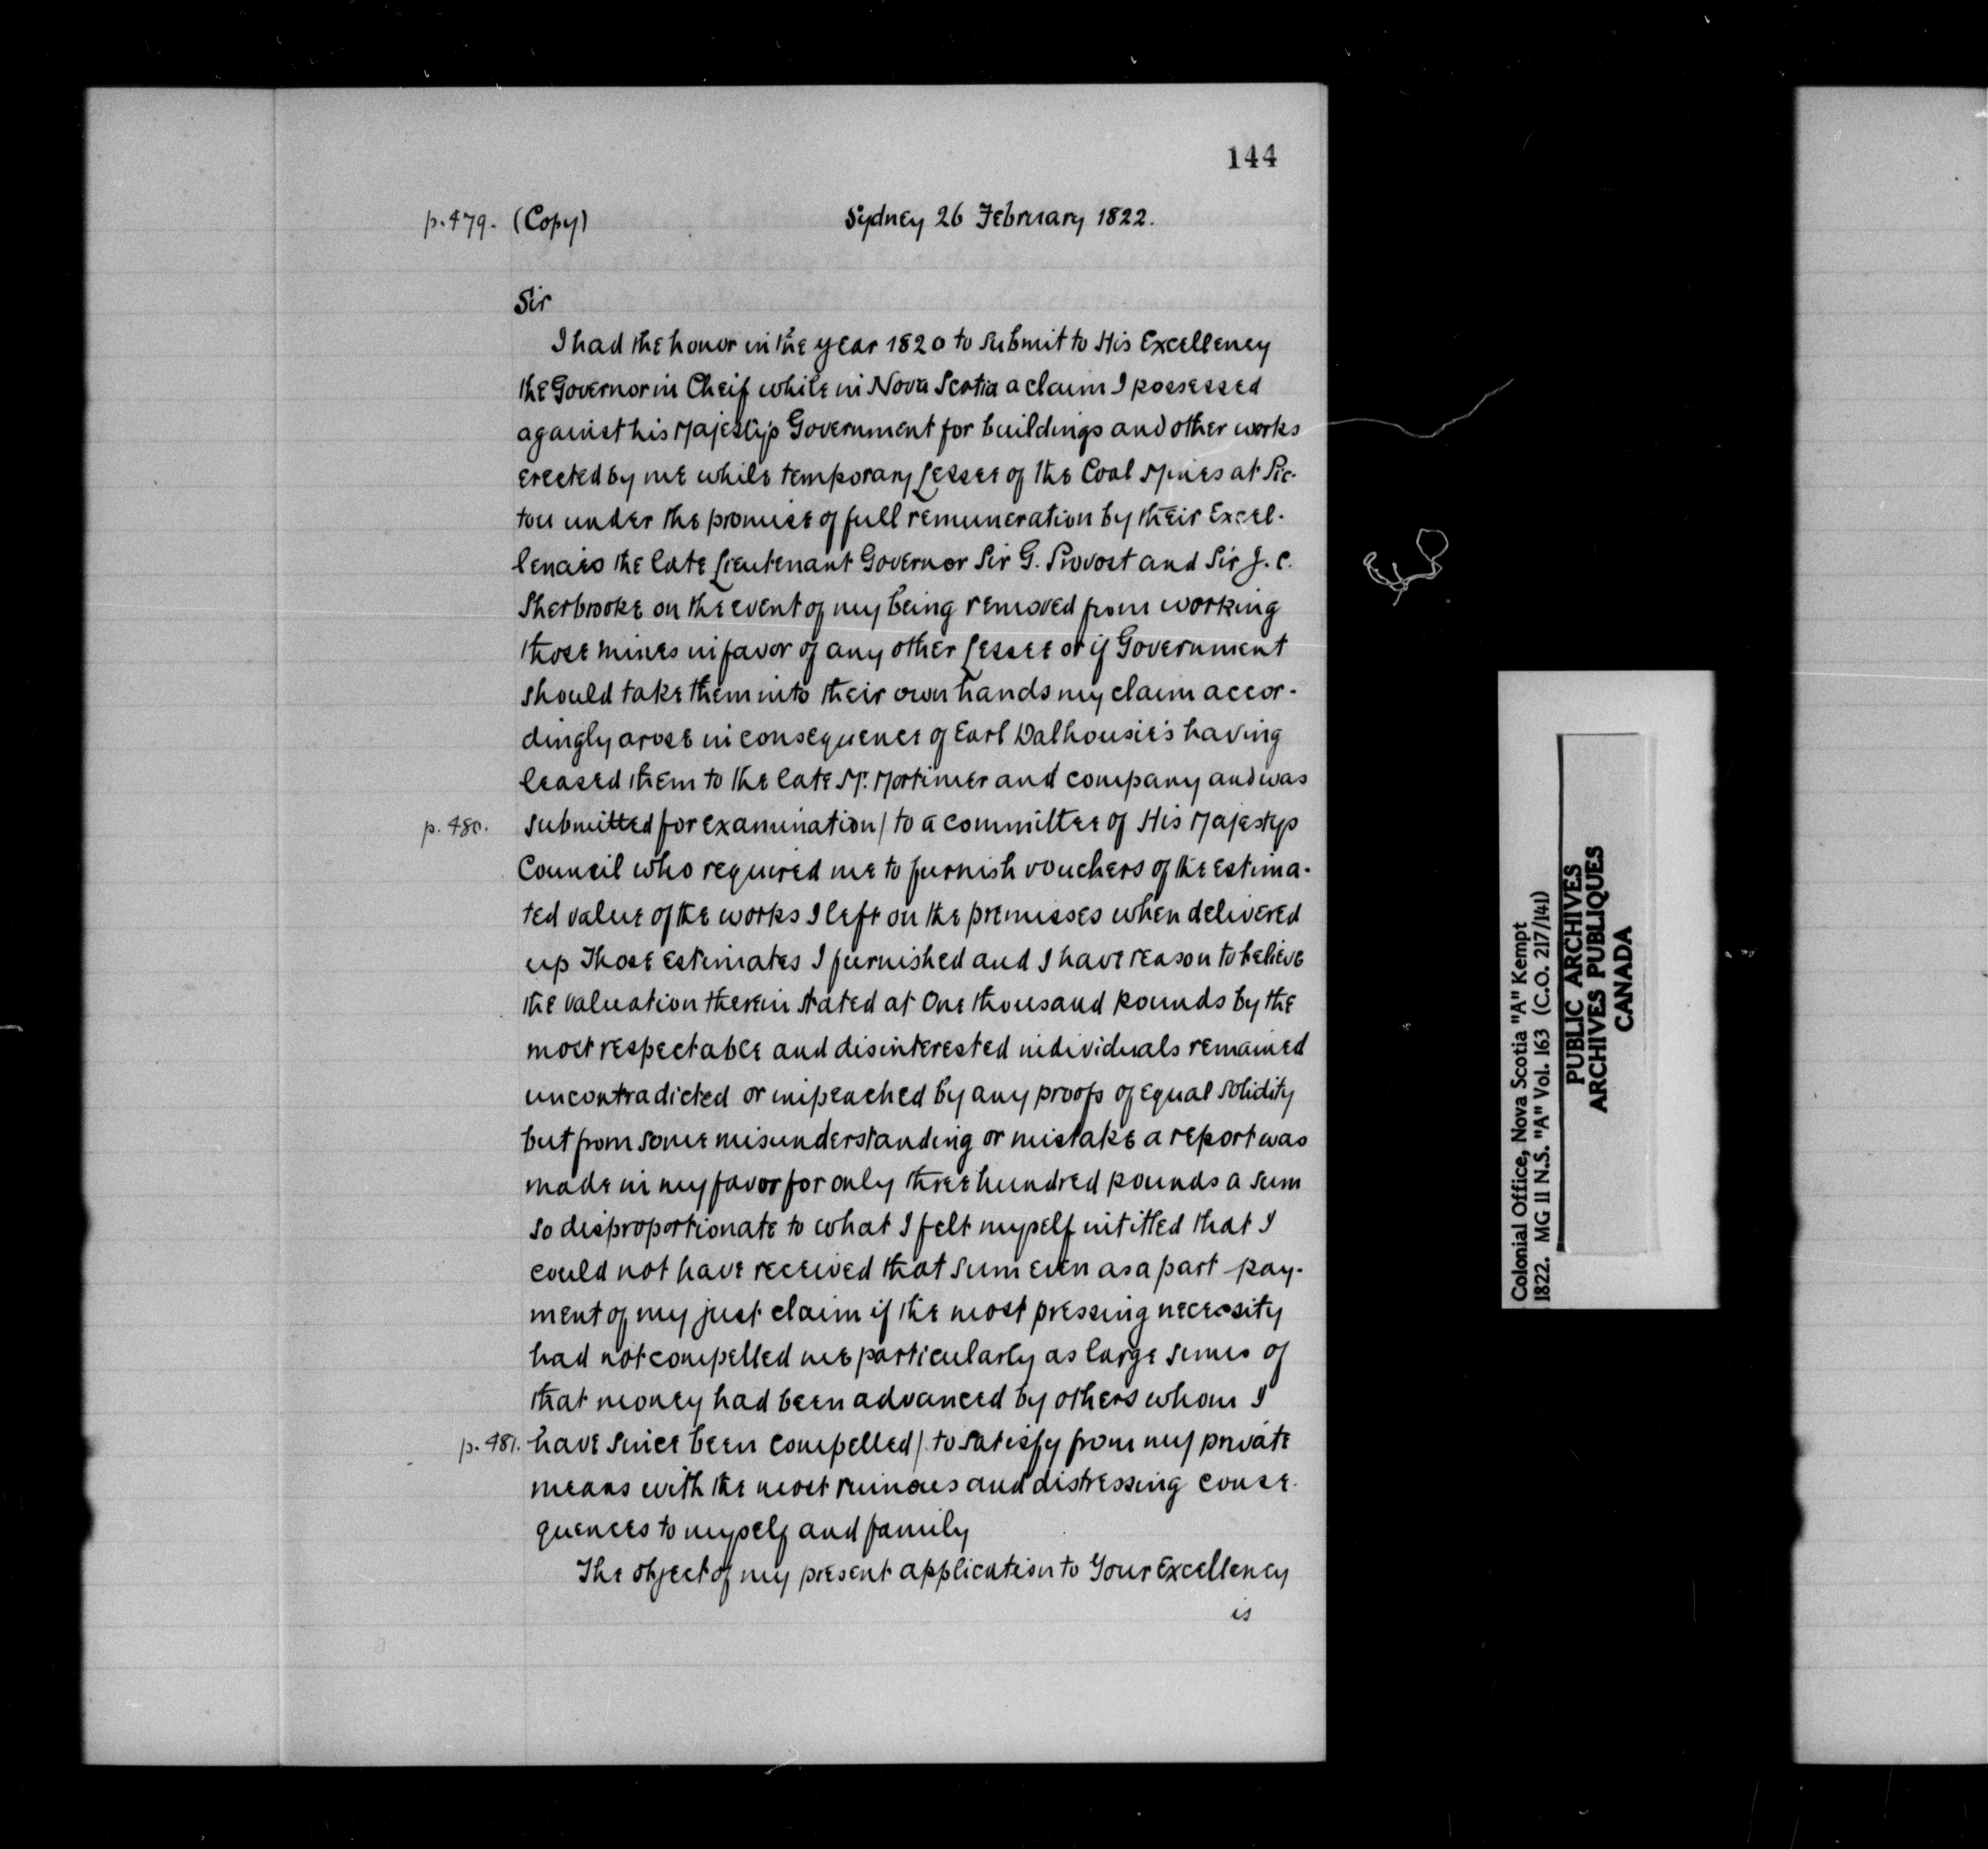 144
p. 479. (Copy) Sydney 26 February 1822.
Sir
I had the honor in the year 1820 to submit to His Excellency
the Governor in Cheif while in Nova Scotia a claim I possessed
against his Majestys Government for buildings and other works
erected by me while temporary Lessee of the Coal Mines at Pic-
tou under the promise of full remuneration by their Excel-
lencies the late Lieutenant Governor Sir G. Provost and Sir J. C.
Sherbrooke on the event of my being removed from working
those mines in favor of any other Lessee or if Government
should take them into their own hands my claim accor-
dingly arose in consequence of Earl Dalhousie's having
leased them to the late Mr. Mortimer and company and was
p. 480. submitted for examination / to a committee of His Majestys
Council who required me to furnish vouchers of the estima-
ted value of the works I left on the premisses when delivered
up Those estimates I furnished and I have reason to believe
the valuation therein stated at One thousand pounds by the
most respectable and disinterested individuals remained
uncontradicted or impeached by any proofs of equal solidity
but from some misunderstanding or mistake a report was
made in my favor for only three hundred pounds a sum
so disproportionate to what I felt myself intitled that I
could not have received that sum even as a part pay-
ment of my just claim if the most pressing necessity
had not compelled me particularly as large sums of
that money had been advanced by others whom I
p. 481. have since been compelled / to satisfy from my private
means with the most ruinous and distressing conse-
quences to myself and family
The object of my present application to Your Excellency
is
Colonial Office, Nova Scotia "A" Kempt
1822. MG 11 N.S. "A" Vol. 163 (C.O. 217/141)
PUBLIC ARCHIVES
ARCHIVES PUBLIQUES
CANADA